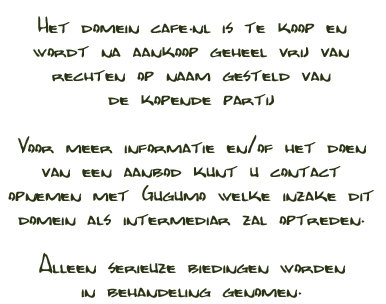 Het domein cafe.nl is te koop en
wordt na aankoop geheel vrij van
rechten op naam gesteld van
de kopende partij
Voor meer informatie en/of het doen
van een aanbod kunt u contact
opnemen met Gugumo welke inzake dit
domein als intermediar zal optreden.
Alleen serieuze biedingen worden
in behandeling genomen.